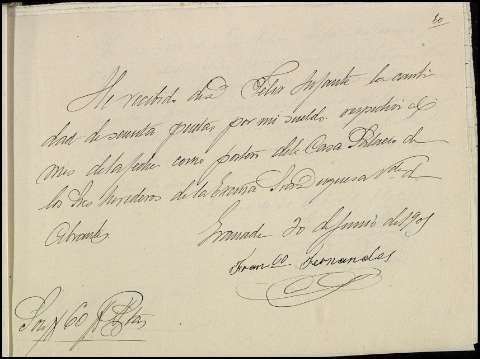 80
He recibido de D. Felix Infante la canti
dad de sesenta pesetas por mi sueldo respectivo al
mes de la fecha como portero de la Casa Palacio de
los Sres Herederos de la Excma Sra Duquesa Vda de
Abrantes
Granada 30 de Junio de 1905
Franco Fernandes
Son # 60 # Ptas